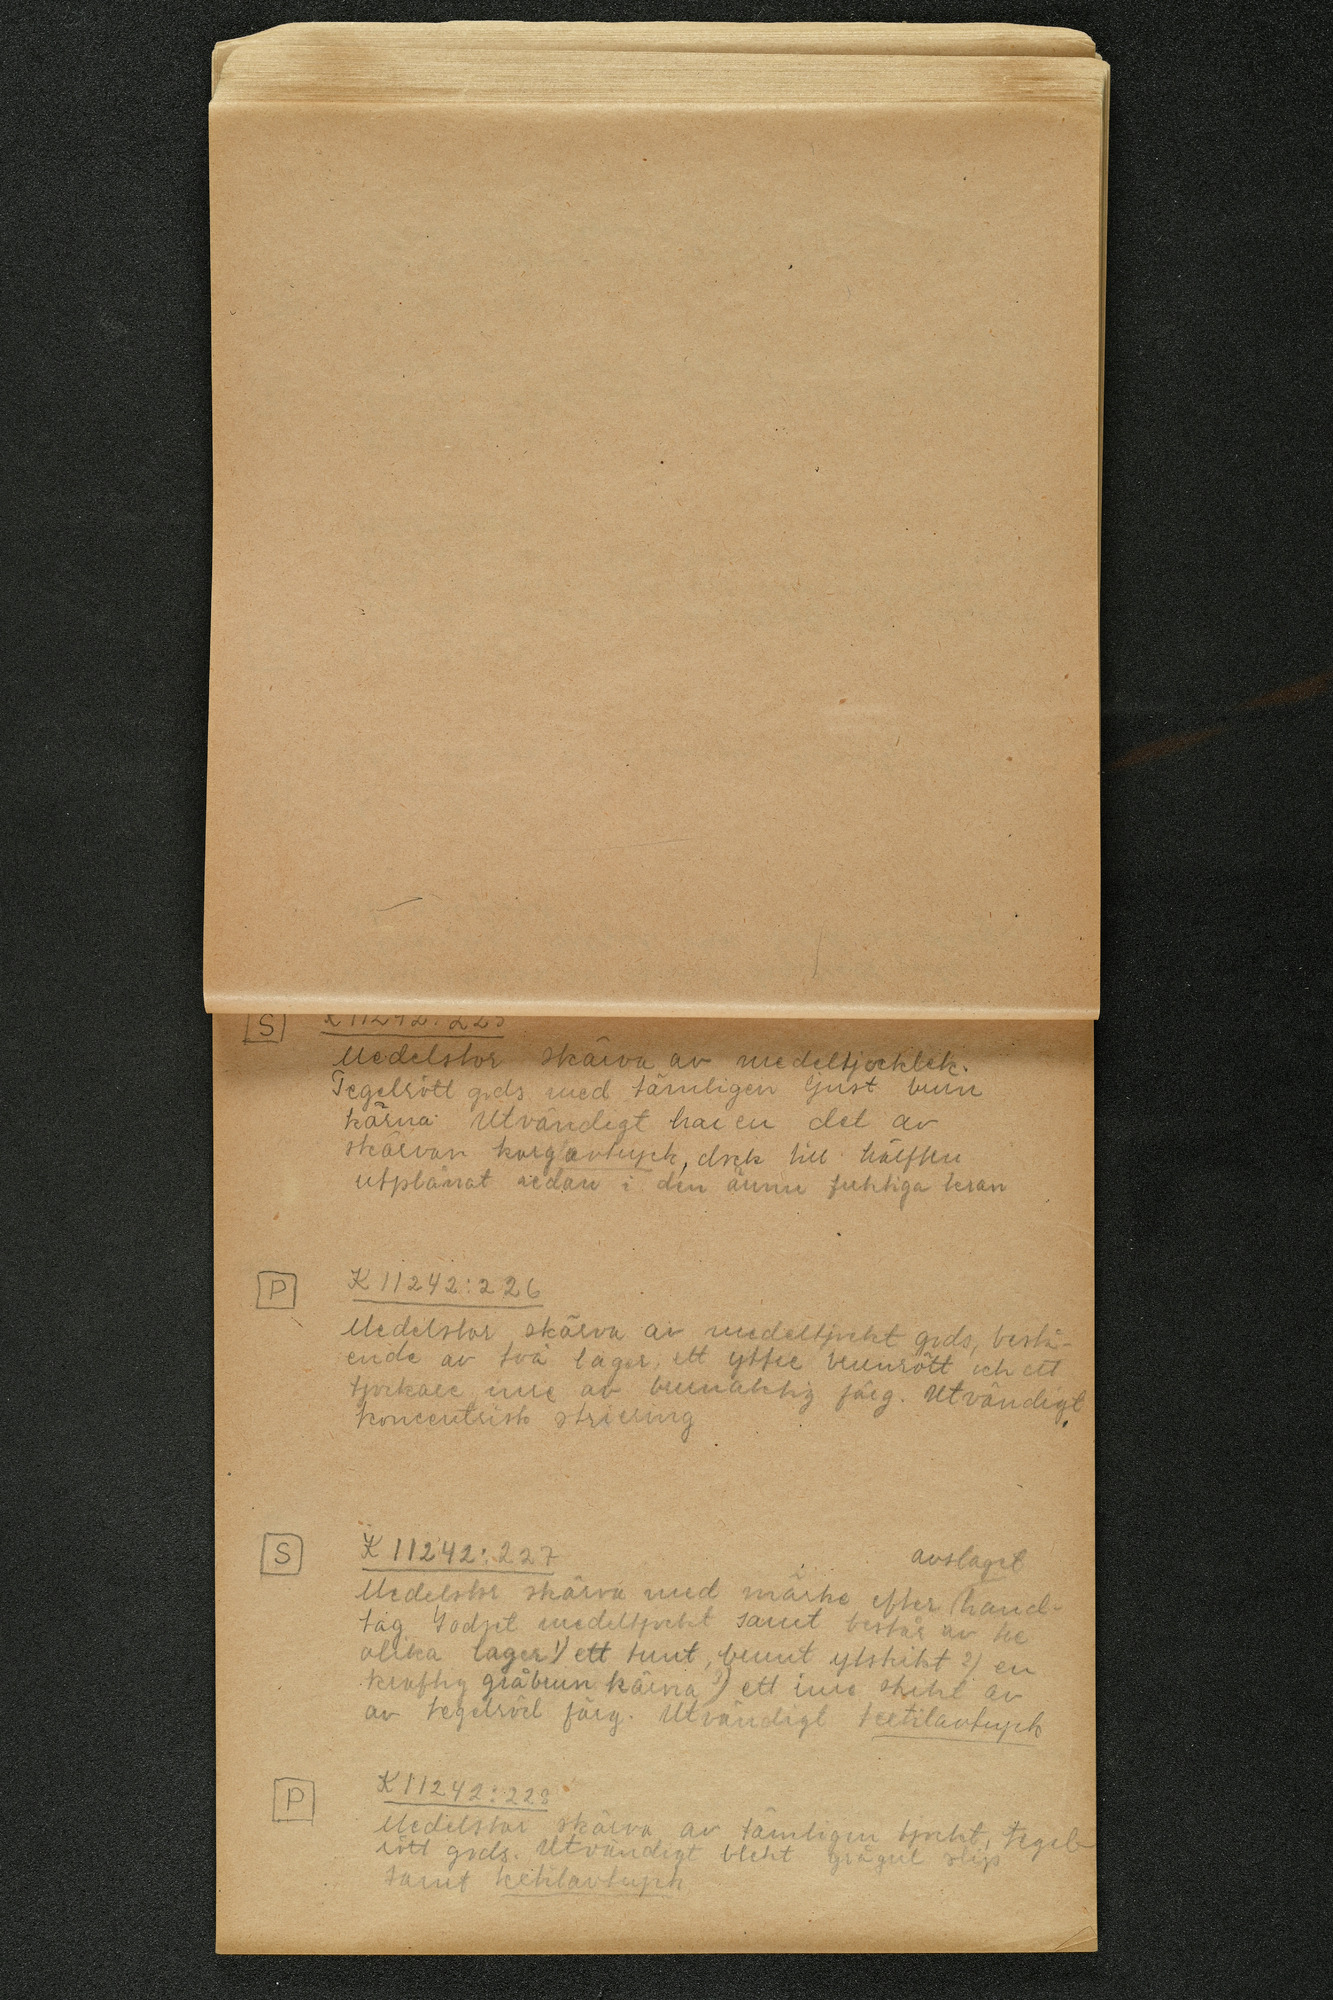 S K 11242:225
Medelstor skärva av medeltjocklek.
Tegelrött gods med tämligen ljust brun
kärna. Utvändigt har en del av
skärvan korgavtryck, dock till hälften
utplånat redan i den ännu fuktiga leran
P K 11242:226
Medelstor skärva av medeltjockt gods, bestå-
ende av två lager, ett yttre brunrött och ett
tjockare inre av brunaktig färg. Utvändigt
koncentrisk striering
S K 11242:227
avslaget
Medelstor skärva med märke efter hand-
tag. Godset medeltjockt samt består av tre
olika lager 1) ett tunt, brunt ytskikt 2) en
kraftig gråbrun kärna 3) ett inre skikt av
av tegelröd färg. Utvändigt textilavtryck
P K 11242:228
Medelstor skärva av tämligen tjockt, tegel-
rött gods. Utvändigt blekt grågul slip
samt textilavtryck